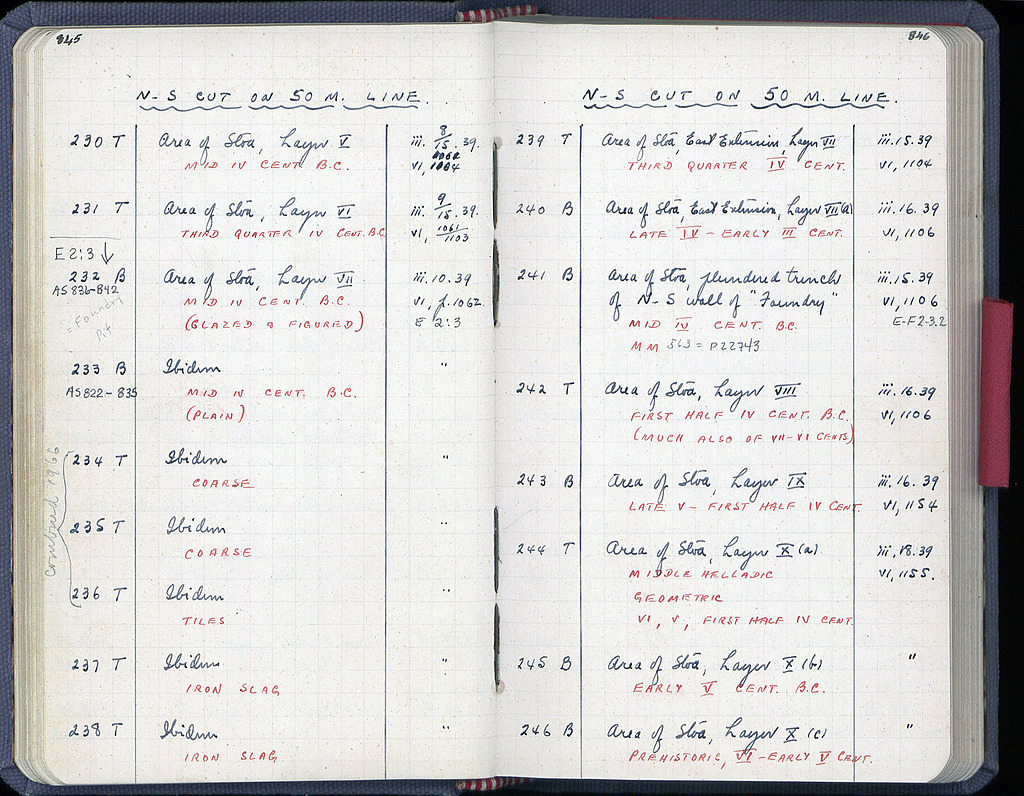 845
N-S CUT ON 50 M. LINE.
230 T Area of Stoa, Layer V iii. 8/15. 39.
MID IV CENT. B.C. vi, 1060/1064
231 T Area of Stoa, Layer VI iii. 9/15. 39.
THIRD QUARTER IV CENT. B.C. vi, 1061/1103
E 2:3 ↓
232 B Area of Stoa, Layer VII iii.10.39
AS 836-842 MID IV CENT. B.C. vi, p.1062.
= Foundry Pit (GLAZED & FIGURED) E 2:3
233 B Ibidem "
AS 822-835 MID IV CENT. B.C.
(PLAIN)
combined 1966
234 T Ibidem "
COARSE
235 T Ibidem "
COARSE
236 T Ibidem "
TILES
237 T Ibidem "
IRON SLAG
238 T Ibidem "
IRON SLAG
846
N-S CUT ON 50 M. LINE.
239 T Area of Stoa, East Extension, Layer VII iii.15.39
THIRD QUARTER IV CENT. vi, 1104
240 B Area of Stoa, East Extension, Layer VII (a) iii.16.39
LATE IV - EARLY III CENT. vi, 1106
241 B Area of Stoa, plundered trench iii.15.39
of N-S wall of "Foundry" vi, 1106
MID IV CENT. B.C. E-F 2-3.2
MM 563 = P22743
242 T Area of Stoa, Layer VIII iii.16.39
FIRST HALF IV CENT. B.C. vi, 1106
(MUCH ALSO OF VII-VI CENTS)
243 B Area of Stoa, Layer IX iii.16.39
LATE V - FIRST HALF IV CENT vi, 1154
244 T Area of Stoa, Layer X (a) iii.18.39
MIDDLE HELLADIC vi, 1155.
GEOMETRIC
VI, V, FIRST HALF IV CENT.
245 B Area of Stoa, Layer X (b) "
EARLY V CENT. B.C.
246 B Area of Stoa, Layer X (c) "
PREHISTORIC, VI - EARLY V CENT.